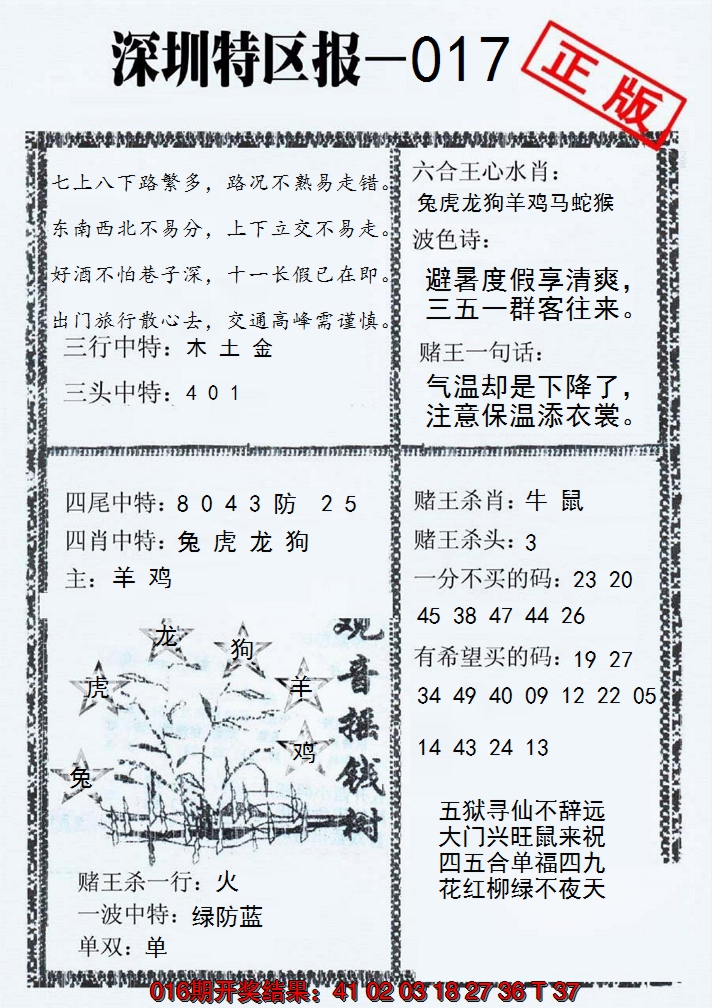 深圳特区报—017
正版
七上八下路繁多，路况不熟易走错。
东南西北不易分，上下立交不易走。
好酒不怕巷子深，十一长假已在即。
出门旅行散心去，交通高峰需谨慎。
三行中特：木 土 金
三头中特：4 0 1
六合王心水肖：
兔虎龙狗羊鸡马蛇猴
波色诗：
避暑度假享清爽，
三五一群客往来。
赌王一句话：
气温却是下降了，
注意保温添衣裳。
四尾中特：8 0 4 3 防 2 5
四肖中特：兔 虎 龙 狗
主：羊 鸡
龙
狗
虎
羊
鸡
兔
观音摇钱树
赌王杀一行：火
一波中特：绿防蓝
单双：单
赌王杀肖：牛 鼠
赌王杀头：3
一分不买的码：23 20
45 38 47 44 26
有希望买的码：19 27
34 49 40 09 12 22 05
14 43 24 13
五狱寻仙不辞远
大门兴旺鼠来祝
四五合单福四九
花红柳绿不夜天
016期开奖结果：41 02 03 18 27 36 T 37